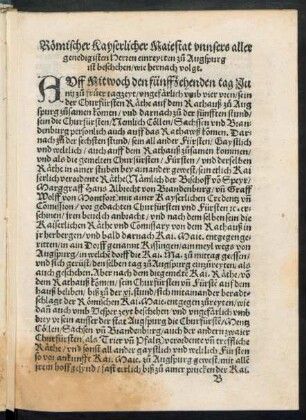 Römischer Kayserlicher Maiestat vnnsers aller
genedigisten Herren einreyten zů Augspurg
ist beschehen/wie hernach volgt.
AVff Mitwoch den fünffzehenden tag Ju
nij zů früer tagzeyt/vngefärlich vmb vier vrn/sein
der Churfürsten Räthe auff dem Rathauß zů Aug
spurg zůsamen komen/vnd darnach zů der fünfften stund/
sein die Churfürsten/Nemlich Cöllen/Sachsen vnd Bran
denburg personlich auch auff das Rathawß kōmen. Dar
nach zů der sechsten stund/sein all ander Fürsten/Gaystlich
vnd weltlich/auch auff dem Rathauß zůsamen kommen/
vnd als die gemelten Churfürsten/Fürsten/vnd derselben
Räthe in ainer stuben bey ainander gewest/sein etlich Kai.
verordente Räthe Nämlich/der Bischoff vō Speyr
Marggraff Hans Albrecht von Brandenburg/vn̄ Graff
Wolff von Montfort/mit ainer Kayserlichen Credentz vn̄
Comission/vor gedachten Churfürsten vnd Fürsten rc. er-
schinen/sren beuelch anbracht/vnd nach dem selben sein die
Kaiserlichen Räthe vnd Comissary von dem Rathauß in
ir herbergen/vnd bald darnach Kai. Mait. entgegen ge-
ritten/in ain Dorff genannt Kissingen/ain meyl wegs von
Augspurg/in welchē dorff die Kai. Ma. zů mittag geessen/
vnd sich gerüst/den selben tag zů Augspurg einzureyten/als
auch geschehen. Aber nach dem die gemelte Kai. Räthe/vō
dem Rathauß kōmen/sein Churfürsten vn̄ Fürstē auf dem
hauß beliben/biß zů der xj. stund/sich mitainander beradt-
schlagt der Römischen Kai. Mait. entgegen zůreyten/wie
dan̄ auch vmb Vesper zeyt beschehen/vnd vngefärlich vmb
drey vr sein ausser der stat Augspurg die Churfürstē/Mentz
Cöllen/Sachsen vn̄ Brandenburg/auch der andern zwaier
Churfürsten/als Trier vn̄ Pfaltz/verordente vn̄ treffliche
Räthe/vnd sonst all ander gaystlich vnd weltlich Fürsten
so vor ankunfft Kai. Mait. zů Augspurg gewest/mit alle
irem hoffgesynd/fast eerlich/biß zů ainer prucken der Kai.
B